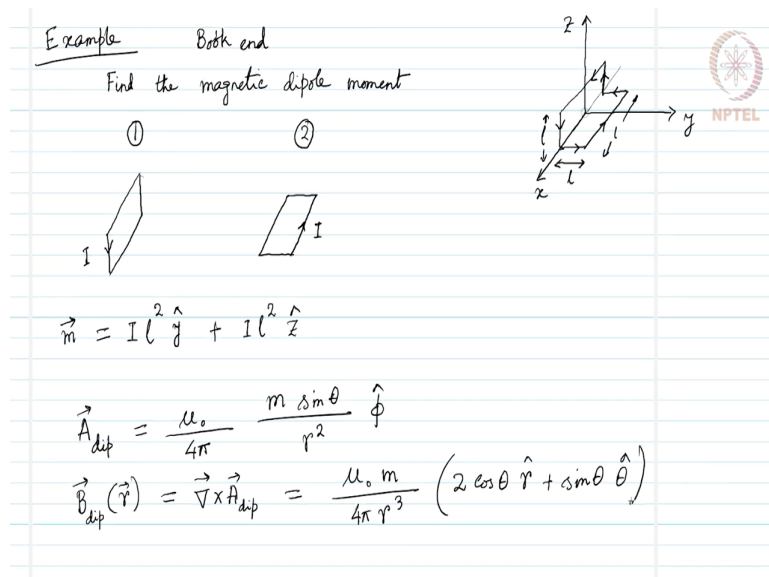 Example Book end
Find the magnetic dipole moment
① ②
I I
z
y
x
l
l
l
NPTEL
m⃗ = I l² ŷ + I l² ẑ
A⃗_dip = μ₀/4π m sinθ/r² φ̂
B⃗_dip(r⃗) = ∇⃗×A⃗_dip = μ₀ m/4π r³ (2 cosθ r̂ + sinθ θ̂)